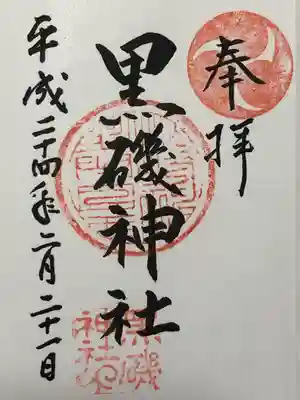 奉拝
黒磯神社
平成二十四年二月二十一日
黒磯
神社